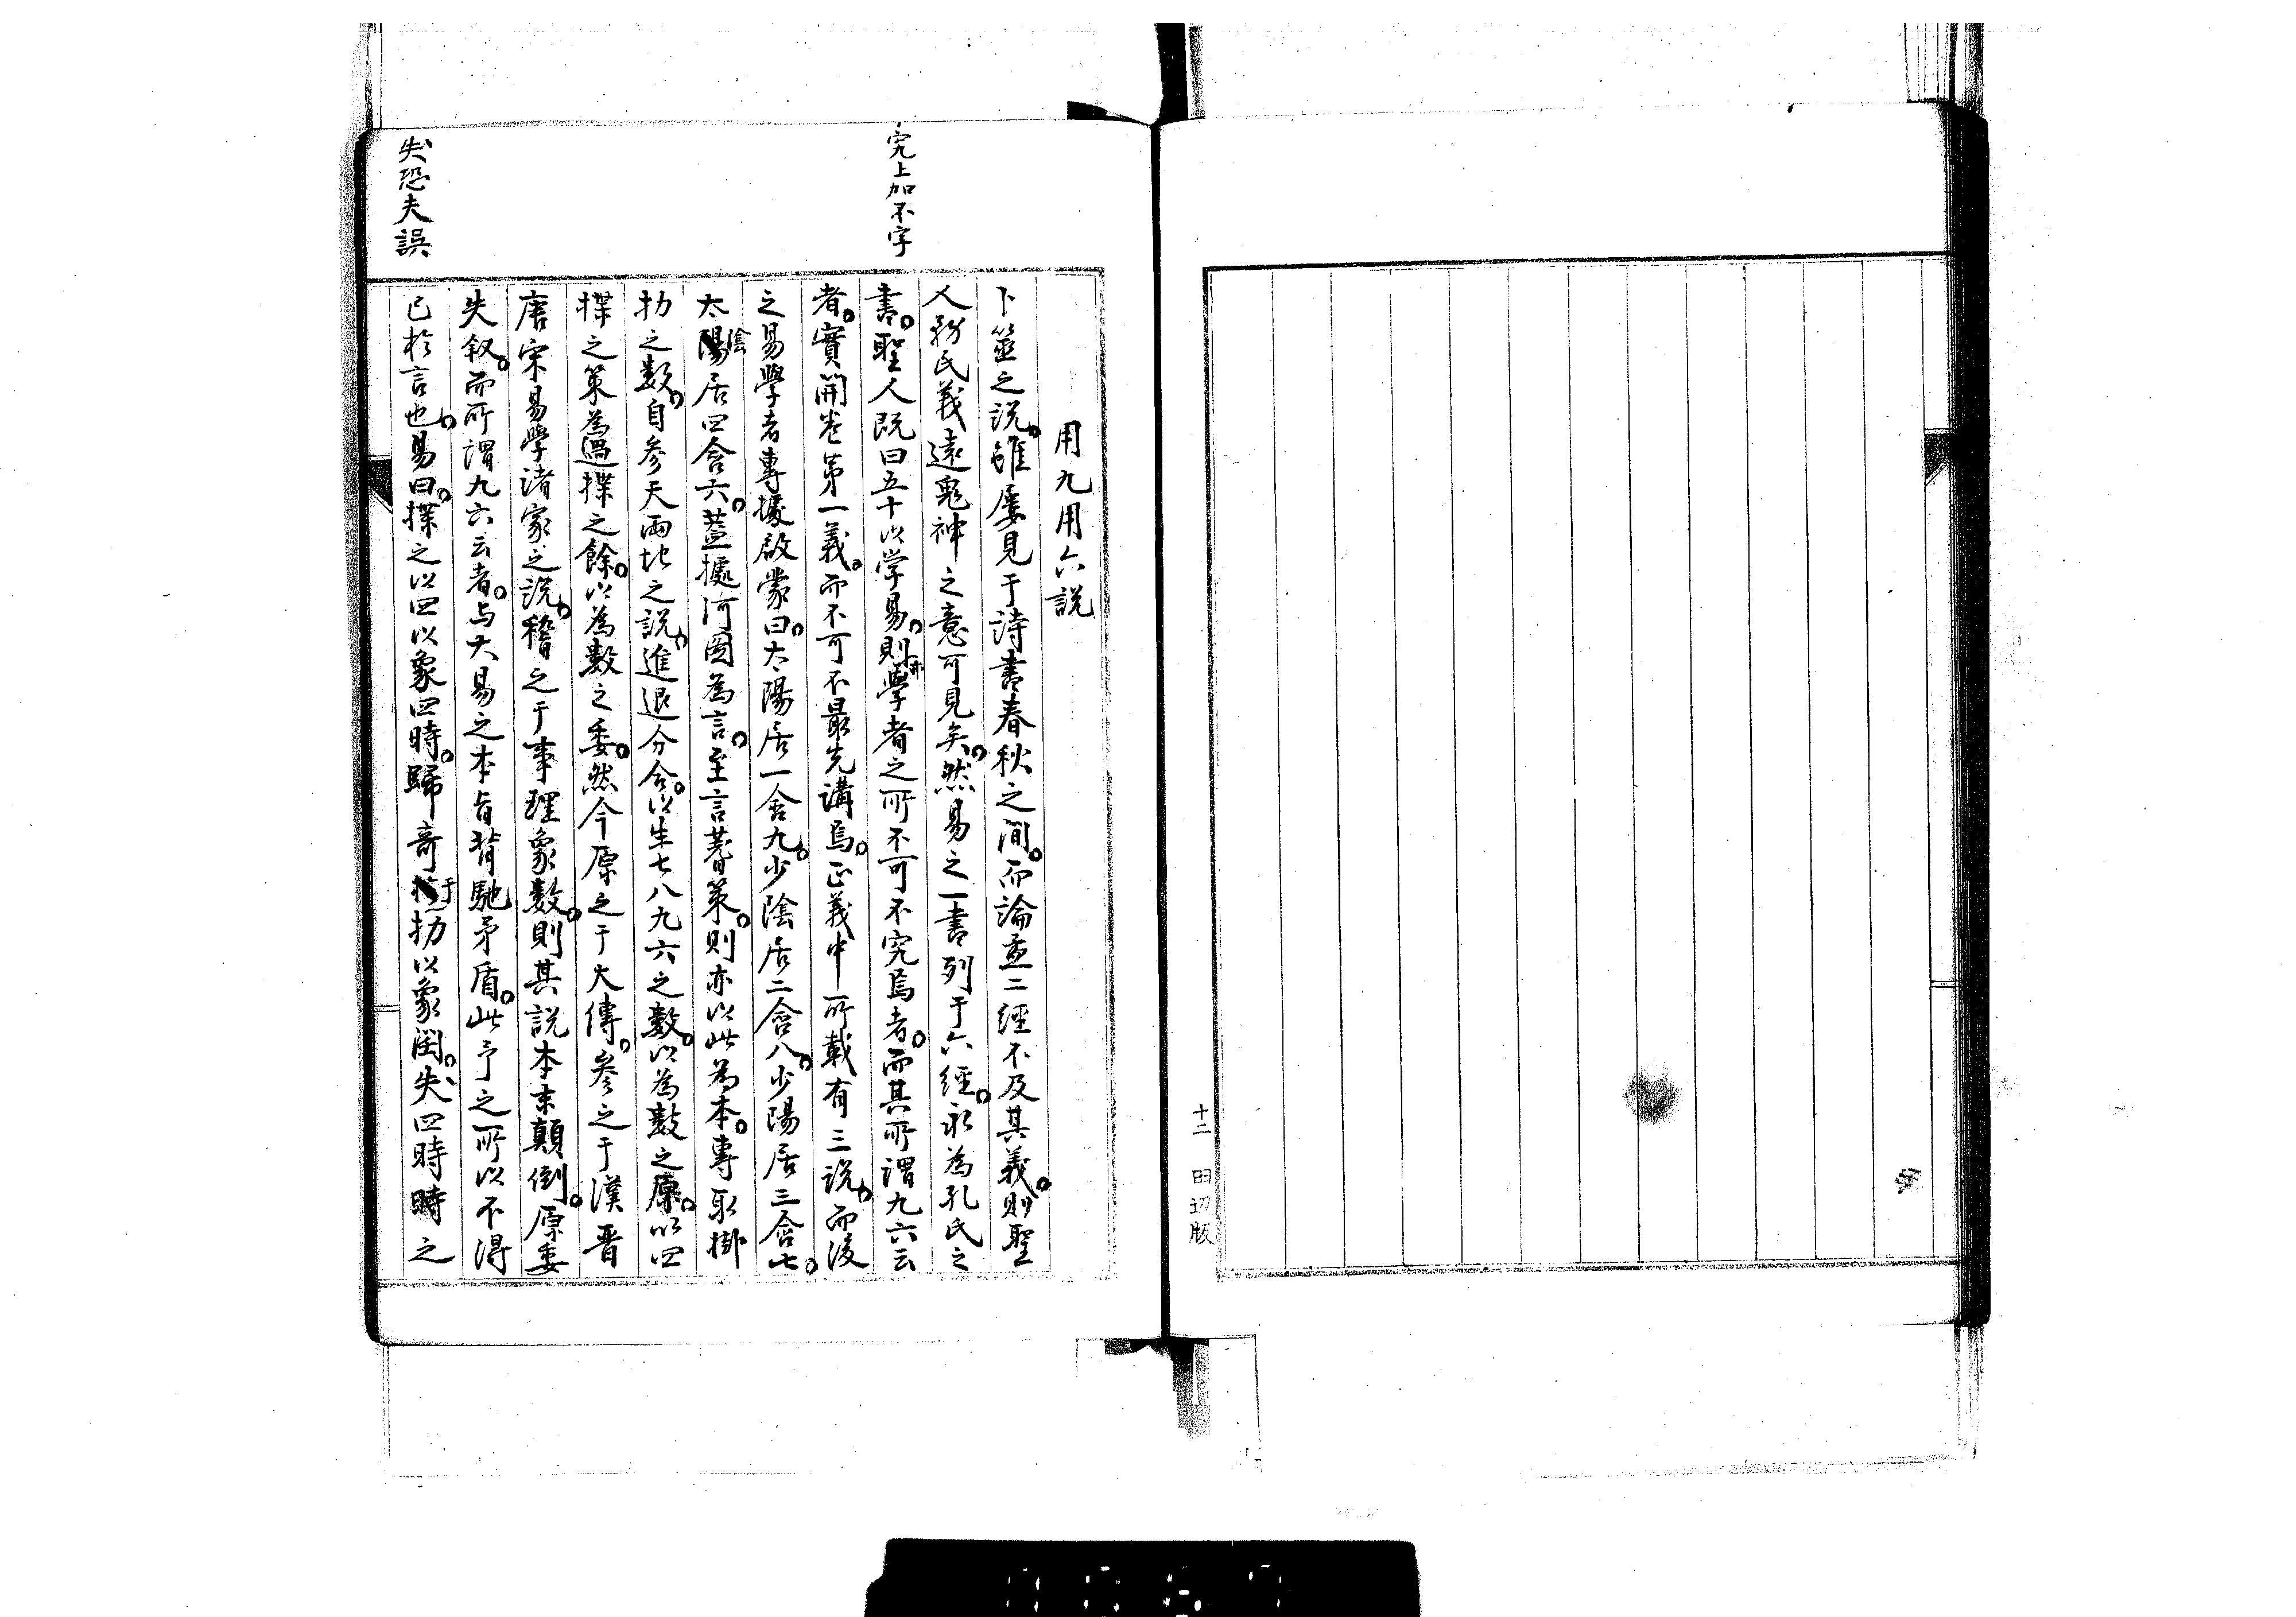 十二 田辺版
用九用六説
卜筮之説。雖屡見于詩書春秋之間。而論孟二經不及其義。則聖
人務民義遠鬼神之意可見矣。然易之一書列于六經。永為孔氏之
究上加不字
書。聖人既曰五十以学易。則亦學者之所不可不究焉者。而其所謂九六云
者。實開卷第一義。而不可不最先講焉。正義中所載有三説。而後
之易學者專據啟蒙曰。太陽居一含九。少陰居二含八。少陽居三含七。
太陰居四含六。蓋據河圖為言。至言蓍策。則亦以此為本。專取掛
扐之数。自参天兩地之説。進退分合。以生七八九六之數。以為數之原。以四
揲之策為過揲之餘。以為數之委。然今原之于大傳。參之于漢晋
唐宋易學諸家之説。稽之于事理象數。則其説本末顛倒。原委
失叙。而所謂九六云者。与大易之本旨背馳矛盾。此予之所以不得
失恐夫誤
已於言也。易曰。揲之以四以象四時。歸奇于扐以象閏。失四時時之